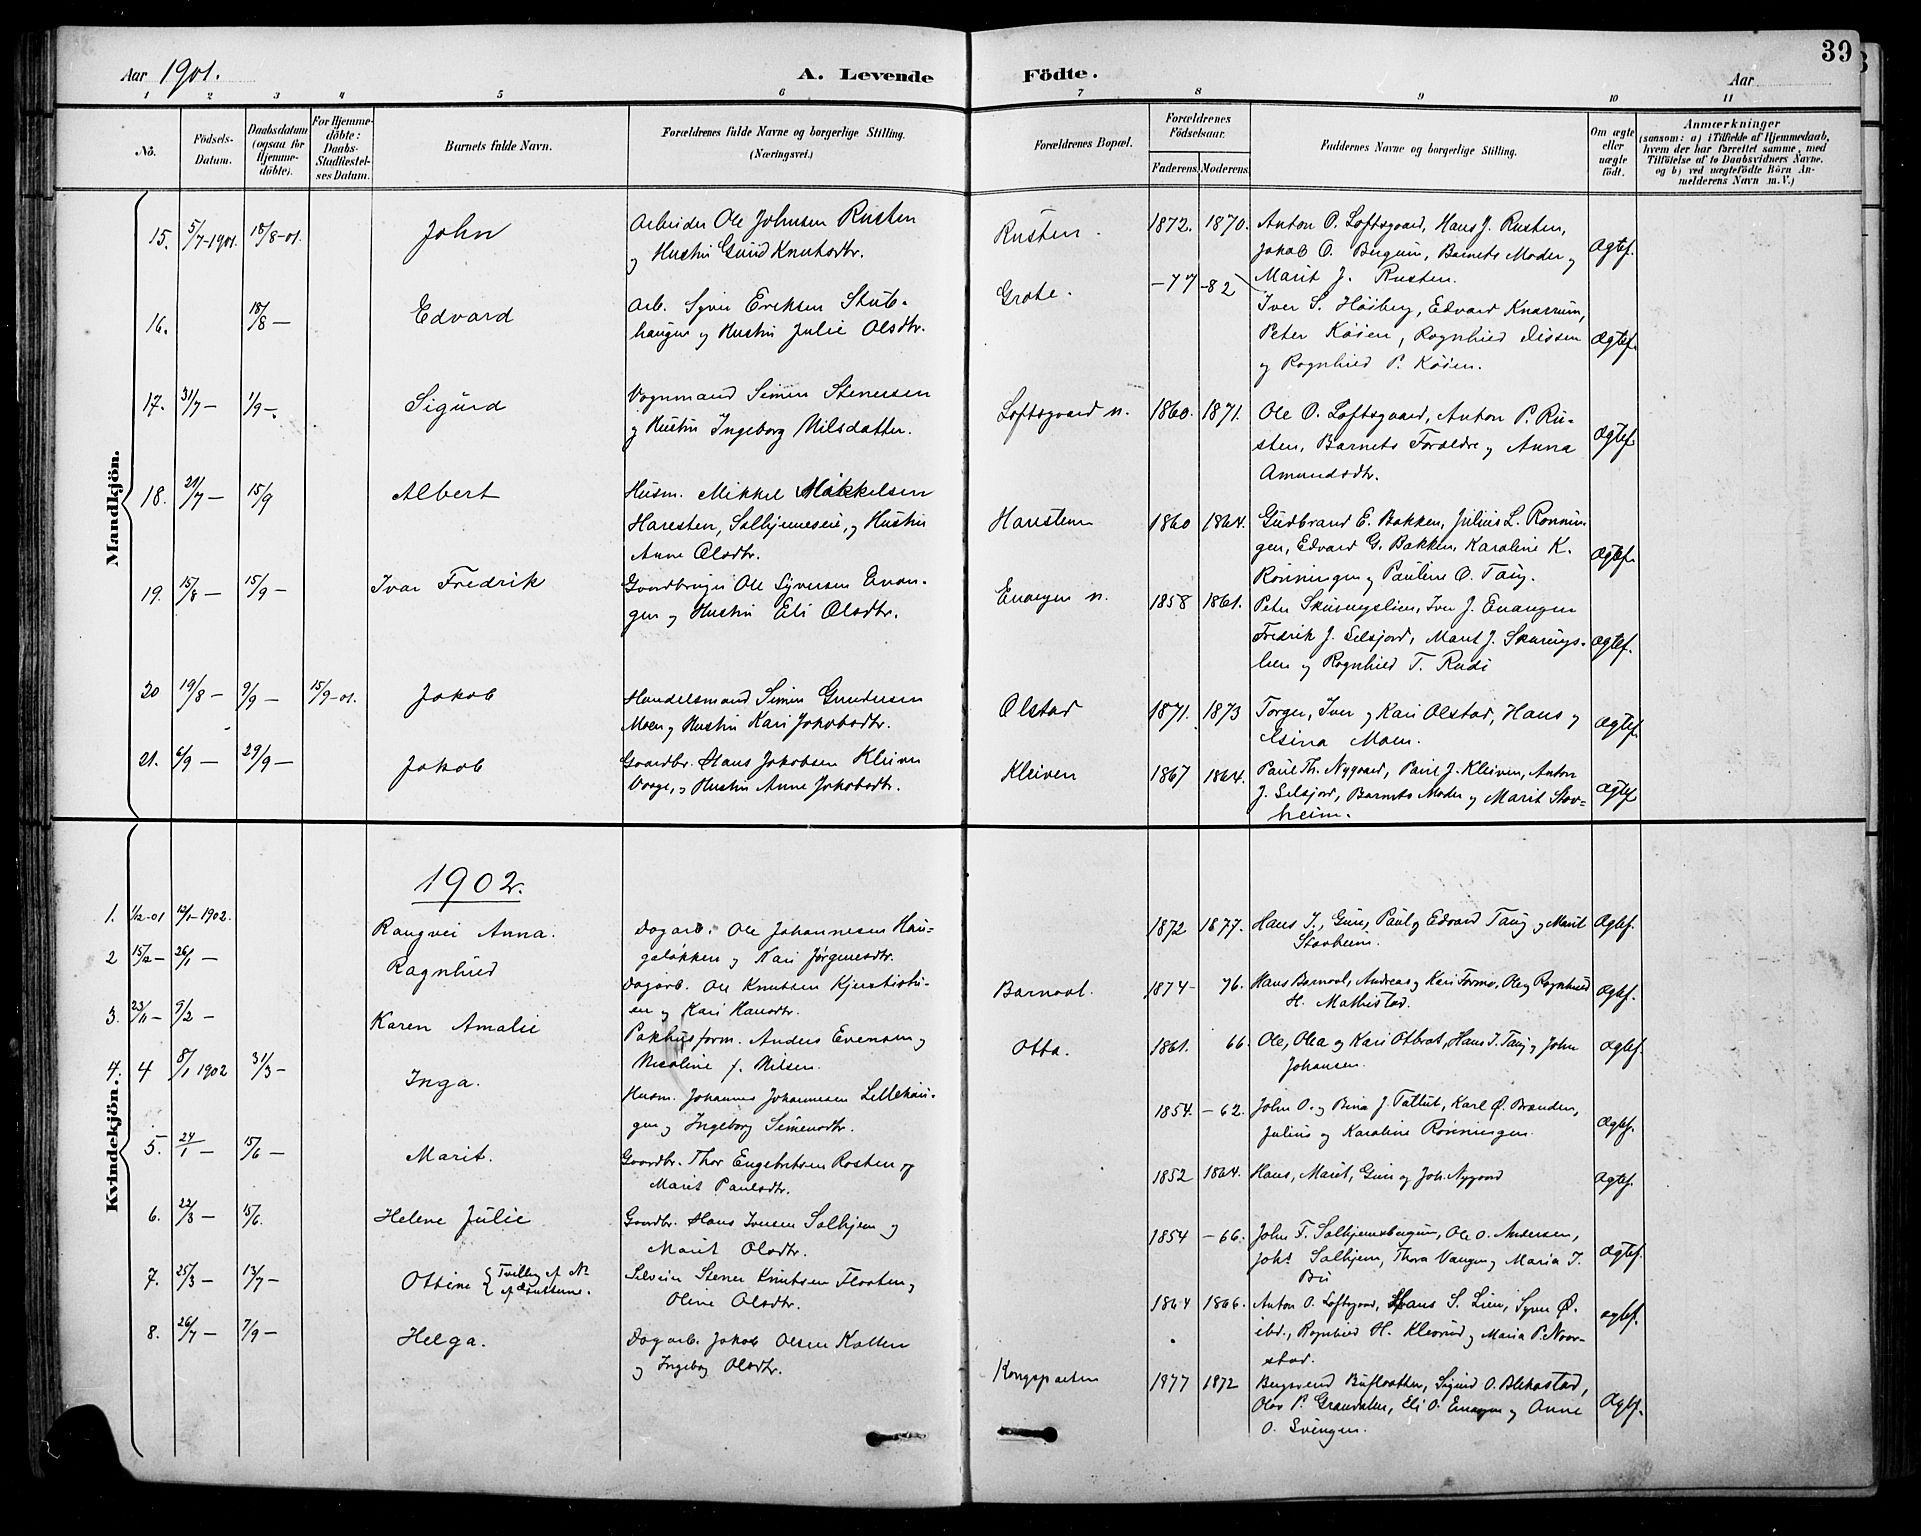 39
Aar 1901.
A. Levende Födte.
Aar
1 2 3 4 5 6 7 8 9 10 11
No.
Födsels-
Datum.
Daabsdatum
(ogsaa for
Hjemme-
döbte).
For Hjemme-
döbte:
Daabs-
Stadfæstel-
ses Datum.
Barnets fulde Navn.
Forældrenes fulde Navne og borgerlige Stilling.
(Næringsvei.)
Forældrenes Bopæl.
Forældrenes
Födselsaar.
Faderens. Moderens.
Faddernes Navne og borgerlige Stilling.
Om ægte
eller
uægte
født.
Anmærkninger
(saasom: a) i Tilfælde af Hjemmedaab,
hvem der har forrettet samme, med
Tilföielse af to Daabsvidners Navne,
og b) ved uægtefödte Börn An-
melderens Navn m.V.)
Mandkjön.
15. 5/7-1901. 18/8-01. John
Arbeider Ole Johnsen Rusten
og Hustru Guid Knutsdtr.
Rusten. 1872. 1870.
Anton P. Loftsgaard, Hans J. Rusten,
Jakob O. Bergum, Barnets Moder og
Marit J. Rusten.
Ægtef.
16. 18/8 — Edvard
Arb. Syver Eriksen Stub-
haugen og Hustru Julie Olsdtr.
Grote. -77 -82
Iver S. Höiberg, Edvard Knarrum,
Peter Köien, Rognhild Dissen
og Rognhild P. Köien.
Ægtef.
17. 31/7 — 1/9 —. Sigurd
Vognmand Simen Stenersen
og Hustru Ingeborg Nilsdatter.
Loftsgaard n. 1860. 1871.
Ole O. Loftsgaard, Anton P. Ru-
sten, Barnets Forældre og Anna
Amundsdtr.
Ægtef.
18. 21/7 — 15/9 Albert
Husm. Mikkel Mikkelsen
Haresten, Solhjemseie, og Hustru
Anne Olsdtr.
Haresten 1860 1864.
Gudbrand E. Bakken, Julius L. Ronnin
gen, Edvard G. Bakken, Karoline K.
Rönningen og Pauline O. Taig.
Ægtef.
19. 15/8 — 15/9 — Ivar Fredrik
Gaardbruger Ole Syversen Enan-
gen og Hustru Eli Olsdtr.
Enangen n. 1858 1861.
Peter Skuringslien, Iver J. Enangen
Fredrik J. Selsjord, Marit J. Skurings-
lien og Rognhild T. Rudi
Ægtef.
20 19/8 — 9/9 — 15/9-01. Jakob
Handelsmand Simen Gundersen
Moen og Hustru Kari Jakobsdtr.
Olstad 1871. 1873
Torger, Iver og Kari Olstad, Hans og
Moen.
Ægtef.
21. 6/9 — 29/9 — Jakob
Gaardbr. Hans Jakobsen Kleiven
Vaage, og Hustru Anne Jakobsdtr.
Kleiven 1867 1864.
Paul Th. Nygaard, Paul J. Kleiven, Anton
J. Selsjord, Barnets Moder og Marit Stav-
heim.
Ægtef
Kvindekjön.
1902.
1. 1/12-01 12/1-1902. Rangvei Anna.
Dagarb. Ole Johannesen Hau-
galökken og Kari Jørgensdtr.
1872 1877.
Hans I., Guri, Paul og Edvard Taig og Marit
Stavheim.
Ægtef.
2 15/12 — 26/1 — Ragnhild
Dagarb. Ole Knutsen Kjærstistu-
en og Kari Hansdtr.
Barnaal. 1874- 76.
Hans Barnaal, Andreas og Kari Formo, Ole og Rognhild
H. Mathistad.
Ægtef.
3. 23/11 — 9/2 — Karen Amalie
Pakhusform. Anders Evensen og
Nicoline f. Nilsen.
Otta. 1861. 66.
Ole, Olea og Kari Otbrat, Hans I. Taig og John
Johansen.
Ægtef.
4. 4 8/1 1902 31/3 — Inga.
Husm. Johannes Johannesen Lillehau-
gen og Ingeborg Simensdtr.
1854. -62.
John O. og Bina J. Tallut, Karl Ø. Brænden,
Julius og Karoline Rönningen.
Ægtef.
5. 24/1 — 15/6 — Marit.
Gaardbr. Thor Engebretsen Rosten og
Marit Paulsdtr.
1852 1864.
Hans, Marit, Guri og Joh. Nygaard
Ægtef.
6. 22/3 — 15/6. Helene Julie
Gaardbr. Hans Iversen Solhjem og
Marit Olsdtr.
1854 -66.
John F. Solhjemsbergum, Ole O. Andersen,
Johs Solhjem, Thora Vangen og Maria I.
Bu
Ægtef.
7. 25/3 — 13/7 — Ottine { Tvilling af No
Selveier Stener Knutsen Flaaten og
Oline Olsdtr.
1864 1866.
Anton O. Loftsgaard, Hans S. Lien, Syver Ø.
ibd., Rognhild H. Kleivrud og Maria P. Naar-
stad.
Ægtef.
8. 26/7 — 7/9 — Helga.
Dagarb. Jakob Olsen Kollen
og Ingeborg Olsdtr.
Kongsparten 1877 1872
Bergsvend Buflaatten, Sigurd O. Blekastad,
Olav P. Grandalen, Eli O. Enangen og Anne
O. Svingen.
Ægtef.